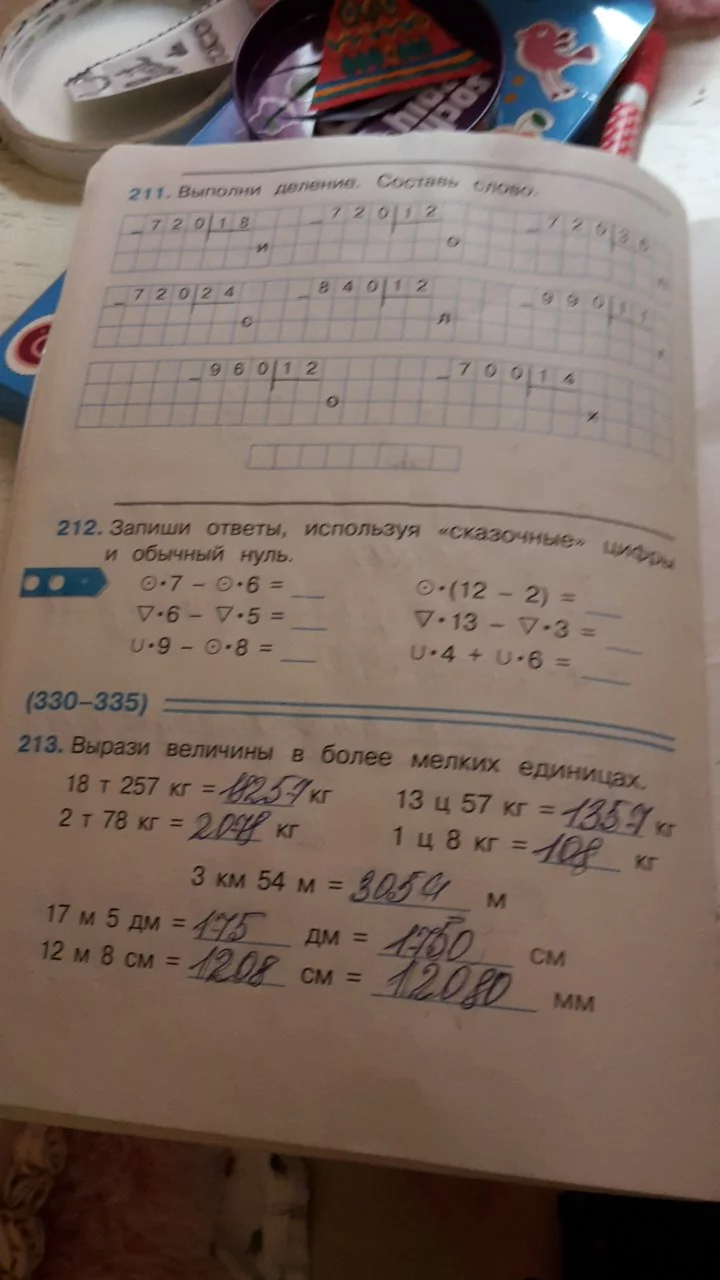 211. Выполни деление. Составь слово.
720|18 720|12 720|36
и о
720|24 840|12 990|11
с л
960|12 700|14
о х
212. Запиши ответы, используя «сказочные» цифры
и обычный нуль.
⊙·7 − ⊙·6 = ⊙·(12 − 2) =
∇·6 − ∇·5 = ∇·13 − ∇·3 =
∪·9 − ⊙·8 = ∪·4 + ∪·6 =
(330–335)
213. Вырази величины в более мелких единицах.
18 т 257 кг = 18257 кг 13 ц 57 кг = 1357 кг
2 т 78 кг = 2078 кг 1 ц 8 кг = 108 кг
3 км 54 м = 3054 м
17 м 5 дм = 175 дм = 1750 см
12 м 8 см = 1208 см = 12080 мм